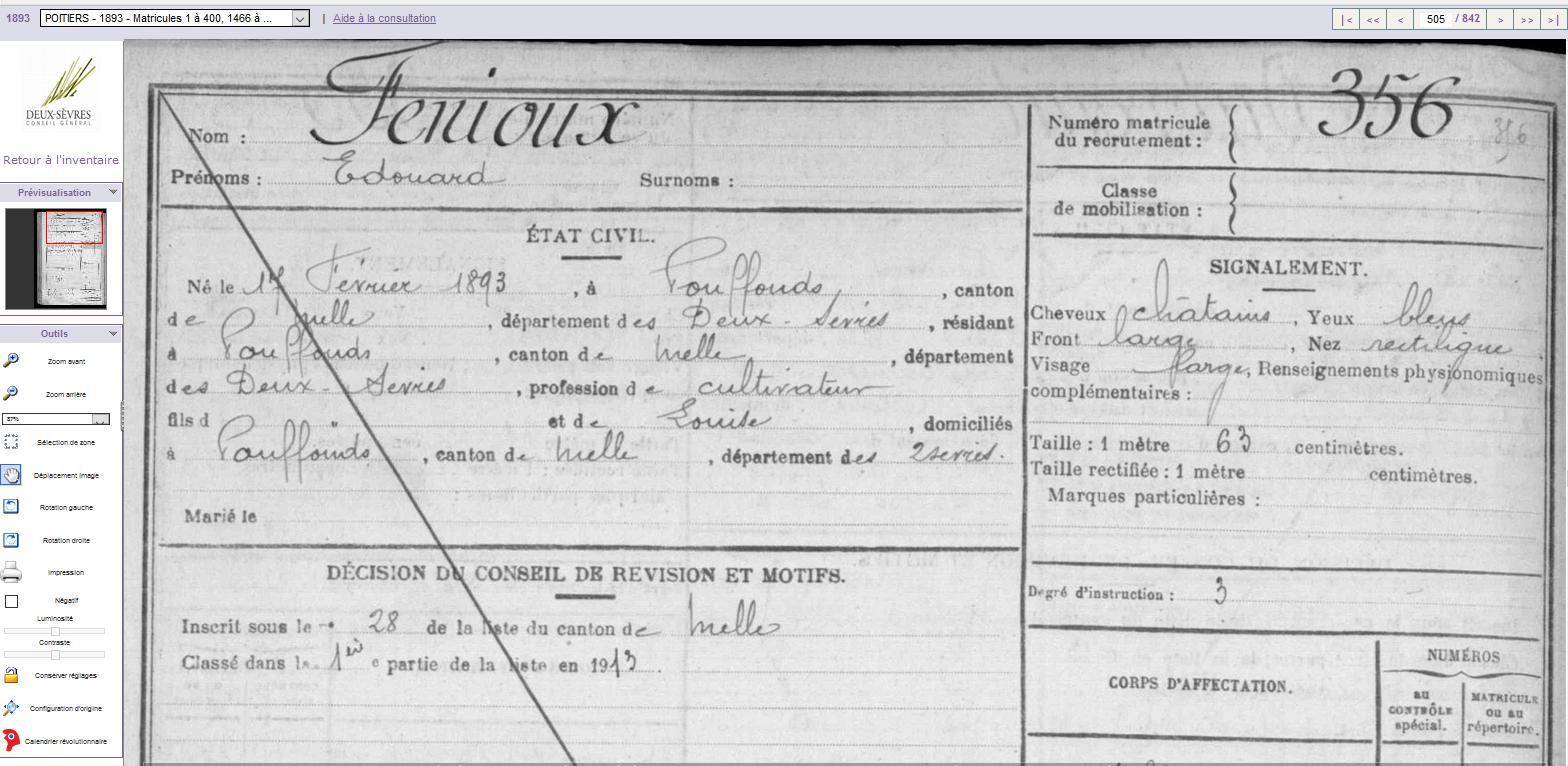 1893 POITIERS - 1893 - Matricules 1 à 400, 1466 à ... | Aide à la consultation |< << < 505 / 842 > >> >|
DEUX-SÈVRES
CONSEIL GÉNÉRAL
Retour à l'inventaire
Prévisualisation
Outils
Zoom avant
Zoom arrière
57%
Sélection de zone
Déplacement image
Rotation gauche
Rotation droite
Impression
Négatif
Luminosité
Contraste
Conserver réglages
Configuration d'origine
Calendrier révolutionnaire
Nom : Fenioux
Prénoms : Edouard Surnoms :
ÉTAT CIVIL.
Né le 17 Février 1893, à Pouffonds, canton
de Melle, département des Deux-Sevres, résidant
à Pouffonds, canton de Melle, département
des Deux-Sevres, profession de cultivateur
fils d " et de Louise, domiciliés
à Pouffonds, canton de Melle, département des 2 sevres.
Marié le
DÉCISION DU CONSEIL DE REVISION ET MOTIFS.
Inscrit sous le n° 28 de la liste du canton de Melle
Classé dans la 1ère partie de la liste en 1913.
Numéro matricule
du recrutement : 356 356
Classe
de mobilisation :
SIGNALEMENT.
Cheveux châtains, Yeux bleus
Front large, Nez rectiligne
Visage large, Renseignements physionomiques
complémentaires :
Taille : 1 mètre 63 centimètres.
Taille rectifiée : 1 mètre centimètres.
Marques particulières :
Degré d'instruction : 3
CORPS D'AFFECTATION.
NUMÉROS
au
CONTRÔLE
spécial.
MATRICULE
ou au
répertoire.